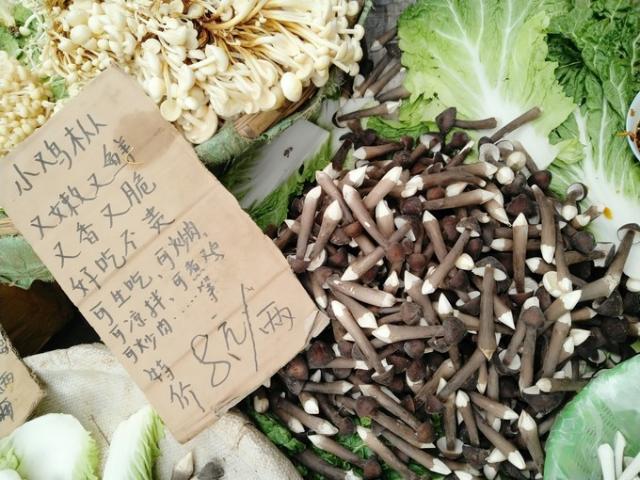 小鸡枞
又嫩又鲜
又香又脆
好吃不贵
可生吃、可炒肉
可凉拌、可煮鸡
可炒肉……等
特价8元/两